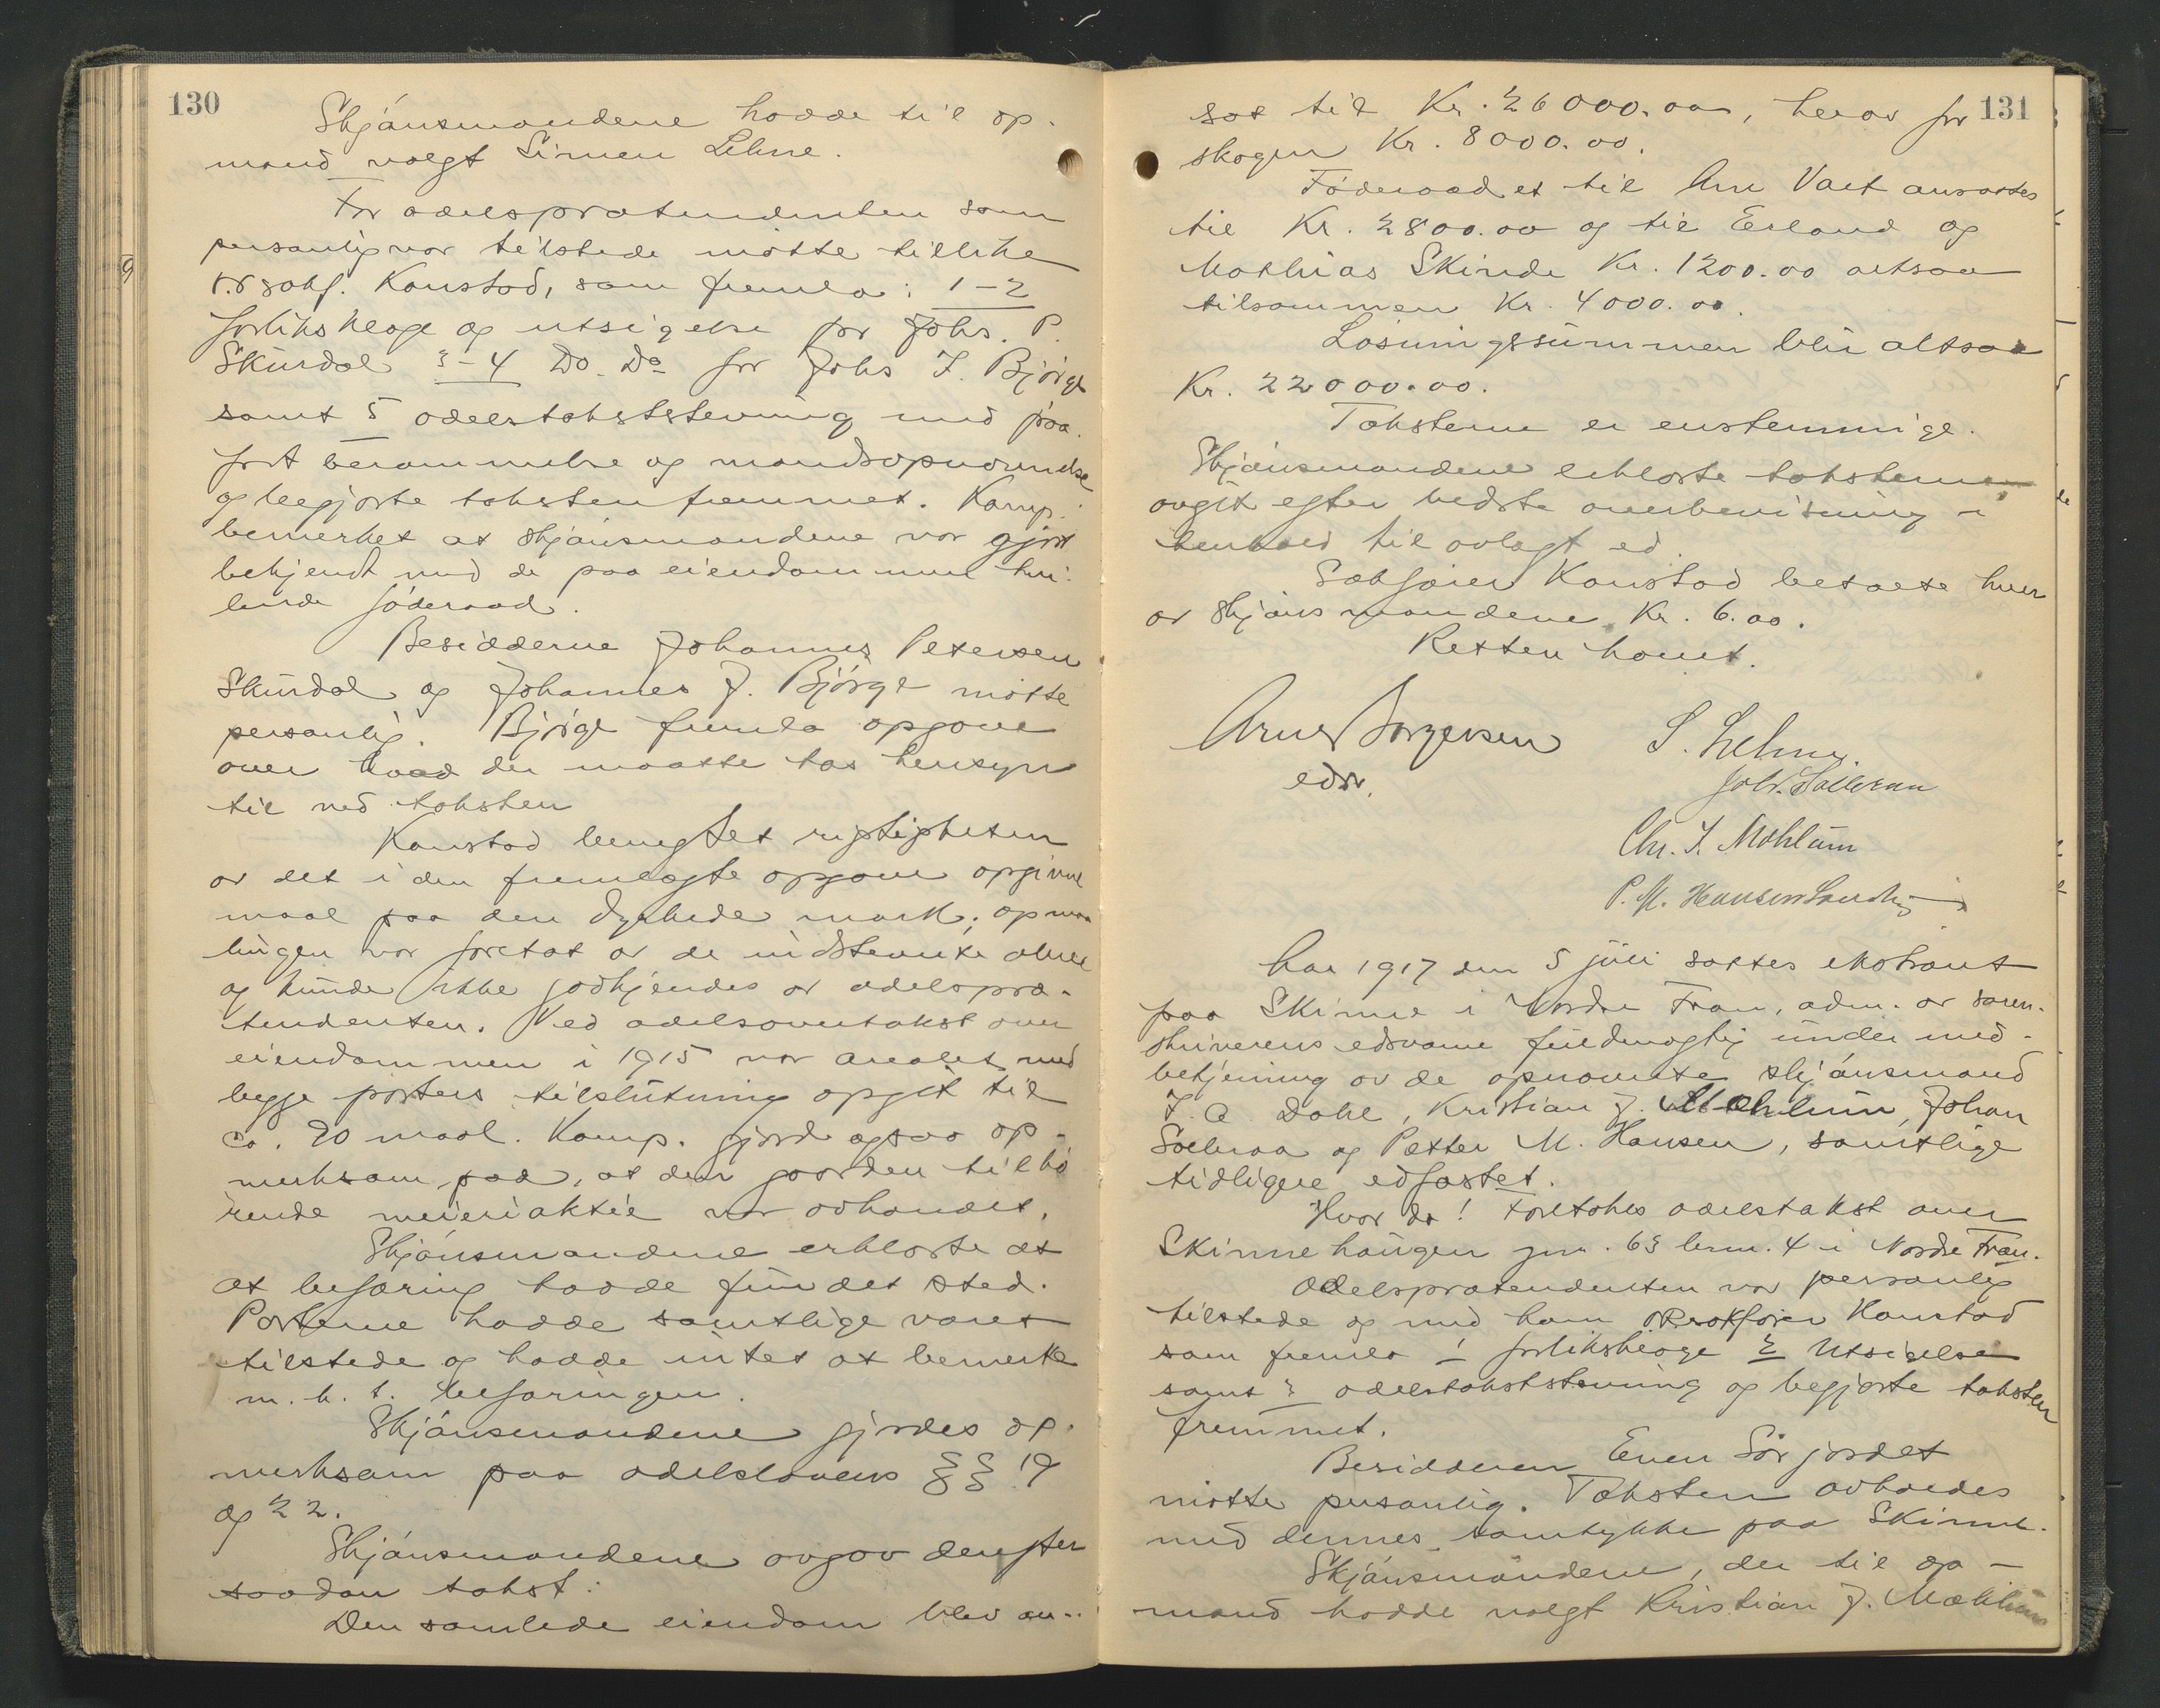 130
Skjønsmændene hadde til op-
mand valgt Simen Lehne.
For odelsprætendenten som
personlig var tilstede møtte tillike
o.r.sakf. Kanstad, som fremla: 1-2
forliksklage og utsigelse for Johs. P.
Skurdal 3-4 Do. Do for Johs J. Bjørge
samt 5 odelstakststevning med paa-
ført berammelse og mandsopnævnelse
og begjærte taksten fremmet. Komp.
bemerket at skjønsmændene var gjort
bekjendt med de paa eiendommen hvi-
lende føderaad.
Besidderne Johannes Petersen
Skurdal og Johannes J. Bjørge møtte
personlig. Bjørge fremla opgave
over hvad der maatte tas hensyn
til ved taksten
Kanstad benegtet rigtigheten
av det i den fremlagte opgave opgivne
maal paa den dyrkede mark; opmaa
lingen var foretat av de indstevnte alene
og kunde ikke godkjendes av odelspræ-
tendenten. Ved odelsovertakst over
eiendommen i 1915 var arealet med
begge parters tilslutning opgit til
ca. 90 maal. Komp. gjorde ogsaa op-
merksom paa, at den gaarden tilhø
rende meieriaktie var avhændet.
Skjønsmændene erklærte at
at befaring hadde fundet sted.
Parterne hadde samtlige været
tilstede og hadde intet at bemerke
m. h. t. befaringen.
Skjønsmændene gjordes op-
merksom paa odelslovens §§ 19
og 22.
Skjønsmændene avgav derefter
saadan takst:
Den samlede eiendom blev an-
131
sat til Kr. 26000.00, herav for
skogen Kr. 8000.00.
Føderaadet til Anr Valt ansattes
til Kr. 2800.00 og til Erland og
Mathias Skinde Kr. 1200.00 altsaa
tilsammen Kr. 4000.00.
Løsningssummen blir altsaa
Kr. 22000.00.
Taksterne er enstemmige.
Skjønsmændene erklærte taksterne
avgit efter bedste overbevisning i
henhold til avlagt ed.
Sakfører Kanstad betalte hver
av skjønsmændene Kr. 6.00.
Retten hævet.
Arne Jørgensen
edsv.
S. Lehne
Joh. Sælleraa
Chr. J. Mæhlum
P. M. Hansen
Aar 1917 den 5 juli sattes ekstraret
paa Skinne i Nordre Fron, adm. av soren-
skriverens edsvorne fuldmægtig under med-
betjening av de opnævnte skjønsmænd
J. A Dahl, Kristian J. Mæhlum, Johan
Sælleraa og Petter M. Hansen, samtlige
tidligere edfæstet.
Hvor da! Foretokes odelstakst over
Skinnehaugen gnr. 63 brnr. 4 i Nordre Fron.
Odelsprætendenten var personlig
tilstede og med ham o.r.sakfører Kanstad
som fremla 1 forliksklage 2 Utsigelse
samt 3 odelstakststevning og begjærte taksten
fremmet.
Besidderen Even Sørjordet
møtte personlig. Taksten avholdes
med dennes samtykke paa Skinne.
Skjønsmændene, der til op-
mand hadde valgt Kristian J. Mæhlum